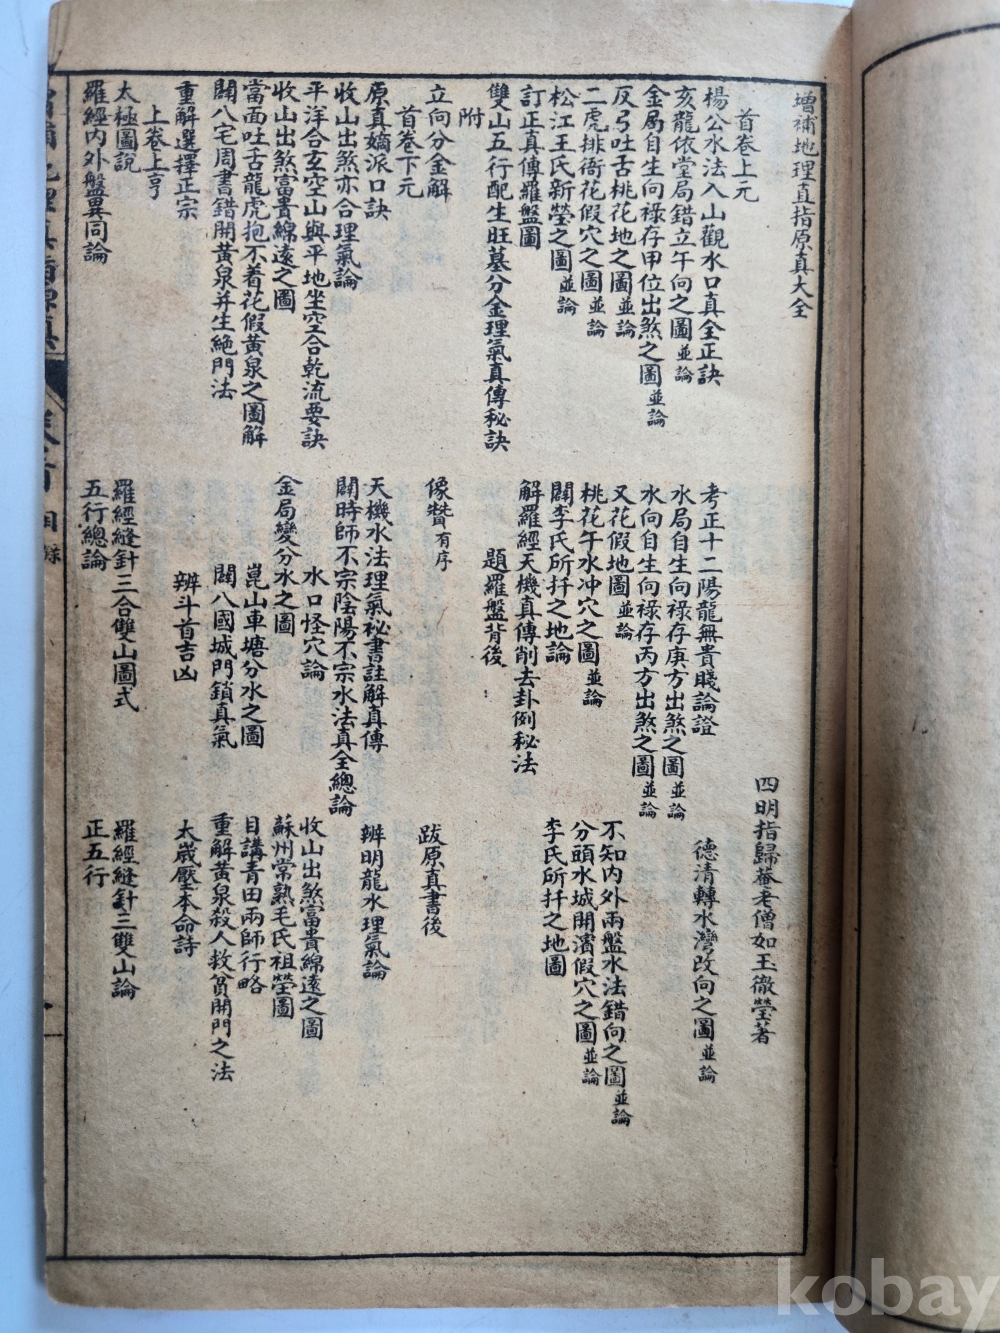 增補地理直指原真大全
首卷上元
四明指歸菴老僧如玉徹瑩著
楊公水法入山觀水口真全正訣
考正十二陽龍無貴賤論證
德清轉水灣改向之圖並論
亥龍依堂局錯立午向之圖並論
水局自生向祿存庚方出煞之圖並論
金局自生向祿存甲位出煞之圖並論
水向自生向祿存丙方出煞之圖並論
反弓吐舌桃花地之圖並論
又花假地圖並論
不知內外兩盤水法錯向之圖並論
二虎排衙花假穴之圖並論
桃花午水冲穴之圖並論
分頭水城開濱假穴之圖並論
松江王氏新塋之圖並論
闢李氏所扦之地論
李氏所扦之地圖
訂正真傳羅盤圖
解羅經天機真傳削去卦例秘法
雙山五行配生旺墓分金理氣真傳秘訣
題羅盤背後
附
立向分金解
像贊有序
跋原真書後
首卷下元
原真嫡派口訣
天機水法理氣秘書註解真傳
辨明龍水理氣論
收山出煞亦合理氣論
闢時師不宗陰陽不宗水法真全總論
平洋合玄空山與平地坐空合乾流要訣
水口怪穴論
收山出煞富貴綿遠之圖
收山出煞富貴綿遠之圖
金局變分水之圖
蘇州常熟毛氏祖塋圖
當面吐舌龍虎抱不着花假黃泉之圖解
崑山車塘分水之圖
目講青田兩師行略
闢八宅周書錯開黃泉并生絕門法
闢八國城門鎖真氣
重解黃泉殺人救貧開門之法
重解選擇正宗
辨斗首吉凶
太歲壓本命詩
上卷上亨
太極圖說
羅經縫針三合雙山圖式
羅經縫針三雙山論
羅經內外盤異同論
五行總論
正五行